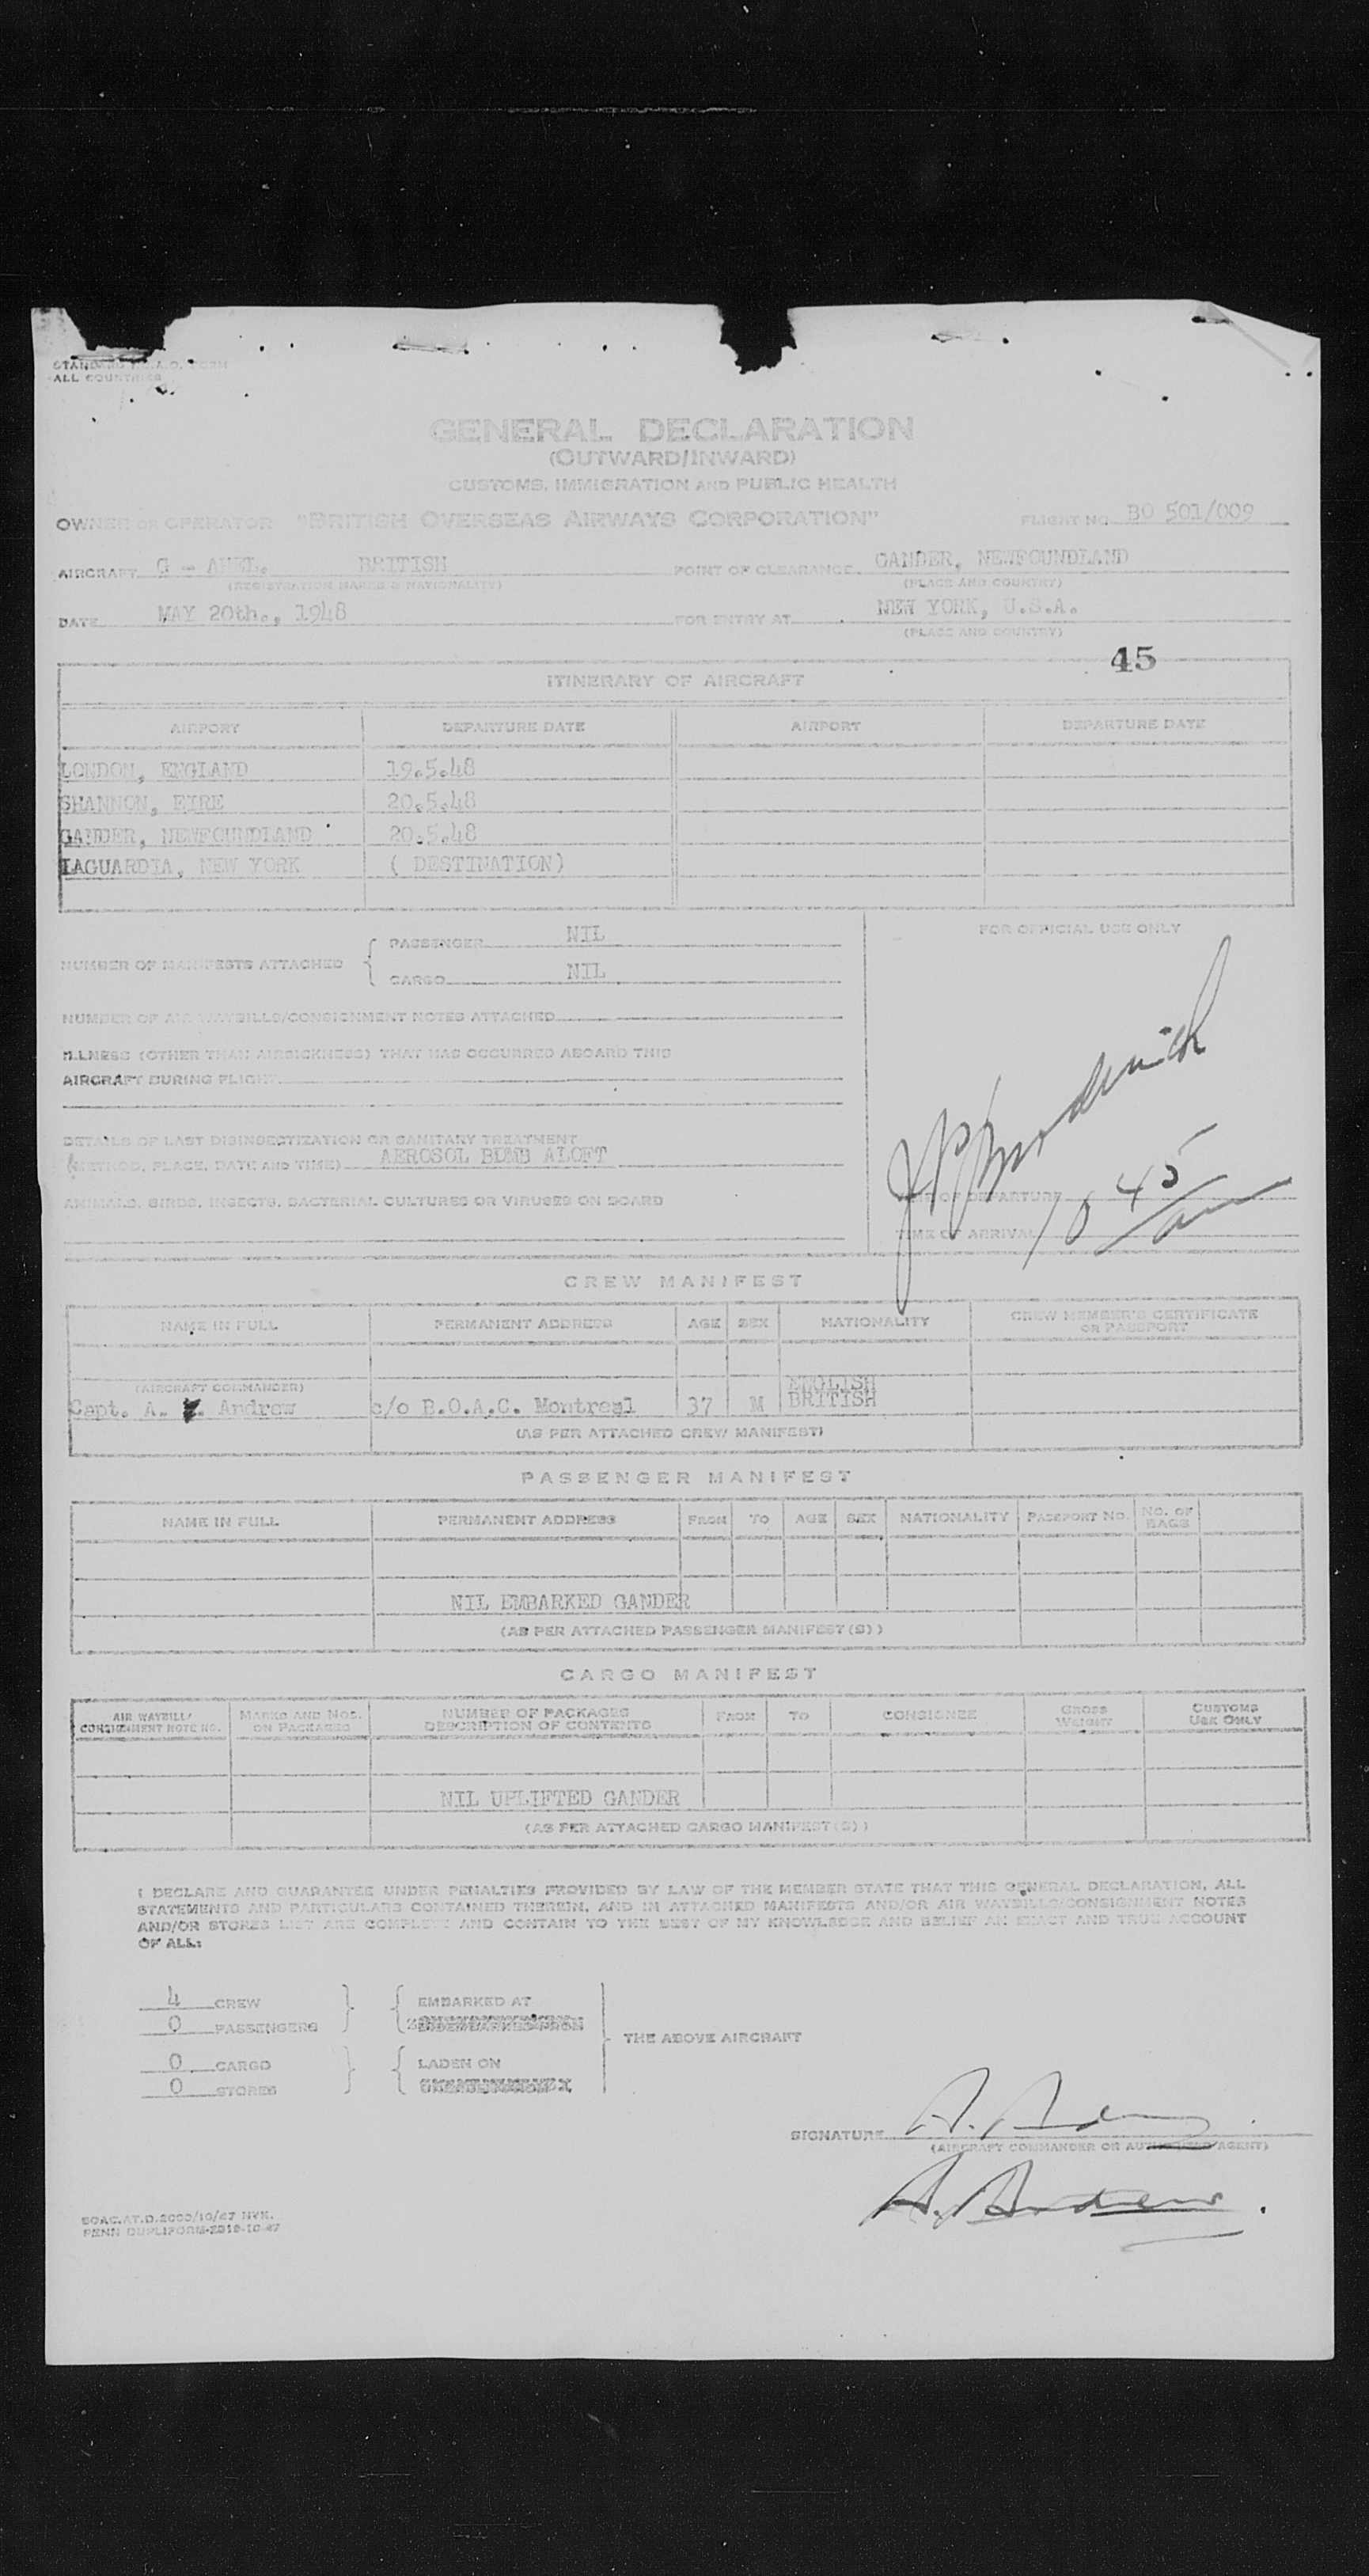 STANDARD I.C.A.O. FORM
ALL COUNTRIES
GENERAL DECLARATION
(OUTWARD/INWARD)
CUSTOMS, IMMIGRATION AND PUBLIC HEALTH
OWNER OR OPERATOR "BRITISH OVERSEAS AIRWAYS CORPORATION" FLIGHT NO. BO 501/009
AIRCRAFT G - AHEL. BRITISH POINT OF CLEARANCE GANDER, NEWFOUNDLAND
(REGISTRATION MARKS & NATIONALITY) (PLACE AND COUNTRY)
DATE MAY 20th., 1948 FOR ENTRY AT NEW YORK, U.S.A.
(PLACE AND COUNTRY)
45
ITINERARY OF AIRCRAFT
AIRPORT DEPARTURE DATE AIRPORT DEPARTURE DATE
LONDON, ENGLAND 19.5.48
SHANNON, EIRE 20.5.48
GANDER, NEWFOUNDLAND 20.5.48
LAGUARDIA, NEW YORK ( DESTINATION)
FOR OFFICIAL USE ONLY
NUMBER OF MANIFESTS ATTACHED
PASSENGER NIL
CARGO NIL
NUMBER OF AIR WAYBILLS/CONSIGNMENT NOTES ATTACHED
ILLNESS (OTHER THAN AIRSICKNESS) THAT HAS OCCURRED ABOARD THIS
AIRCRAFT DURING FLIGHT
DETAILS OF LAST DISINSECTIZATION OR SANITARY TREATMENT
(METHOD, PLACE, DATE AND TIME) AEROSOL BOMB ALOFT
ANIMALS, BIRDS, INSECTS, BACTERIAL CULTURES OR VIRUSES ON BOARD
TIME OF DEPARTURE
TIME OF ARRIVAL 10 45 am
CREW MANIFEST
NAME IN FULL PERMANENT ADDRESS AGE SEX NATIONALITY CREW MEMBER'S CERTIFICATE
OR PASSPORT
(AIRCRAFT COMMANDER) ENGLISH
Capt. A. Andrew c/o B.O.A.C. Montreal 37 M BRITISH
(AS PER ATTACHED CREW MANIFEST)
PASSENGER MANIFEST
NAME IN FULL PERMANENT ADDRESS FROM TO AGE SEX NATIONALITY PASSPORT NO. NO. OF
BAGS
NIL EMBARKED GANDER
(AS PER ATTACHED PASSENGER MANIFEST(S))
CARGO MANIFEST
AIR WAYBILL/
CONSIGNMENT NOTE NO. MARKS AND NOS.
ON PACKAGES NUMBER OF PACKAGES
DESCRIPTION OF CONTENTS FROM TO CONSIGNEE GROSS
WEIGHT CUSTOMS
USE ONLY
NIL UPLIFTED GANDER
(AS PER ATTACHED CARGO MANIFEST(S))
I DECLARE AND GUARANTEE UNDER PENALTIES PROVIDED BY LAW OF THE MEMBER STATE THAT THIS GENERAL DECLARATION, ALL
STATEMENTS AND PARTICULARS CONTAINED THEREIN, AND IN ATTACHED MANIFESTS AND/OR AIR WAYBILLS/CONSIGNMENT NOTES
AND/OR STORES LIST ARE COMPLETE AND CONTAIN TO THE BEST OF MY KNOWLEDGE AND BELIEF AN EXACT AND TRUE ACCOUNT
OF ALL:
4 CREW EMBARKED AT
0 PASSENGERS
THE ABOVE AIRCRAFT
0 CARGO LADEN ON
0 STORES
SIGNATURE A. Andrew
(AIRCRAFT COMMANDER OR AUTHORISED AGENT)
A. Andrew.
BOAC.AT.D.2000/10/47 NYK.
PENN DUPLIFORM-2519-10-47